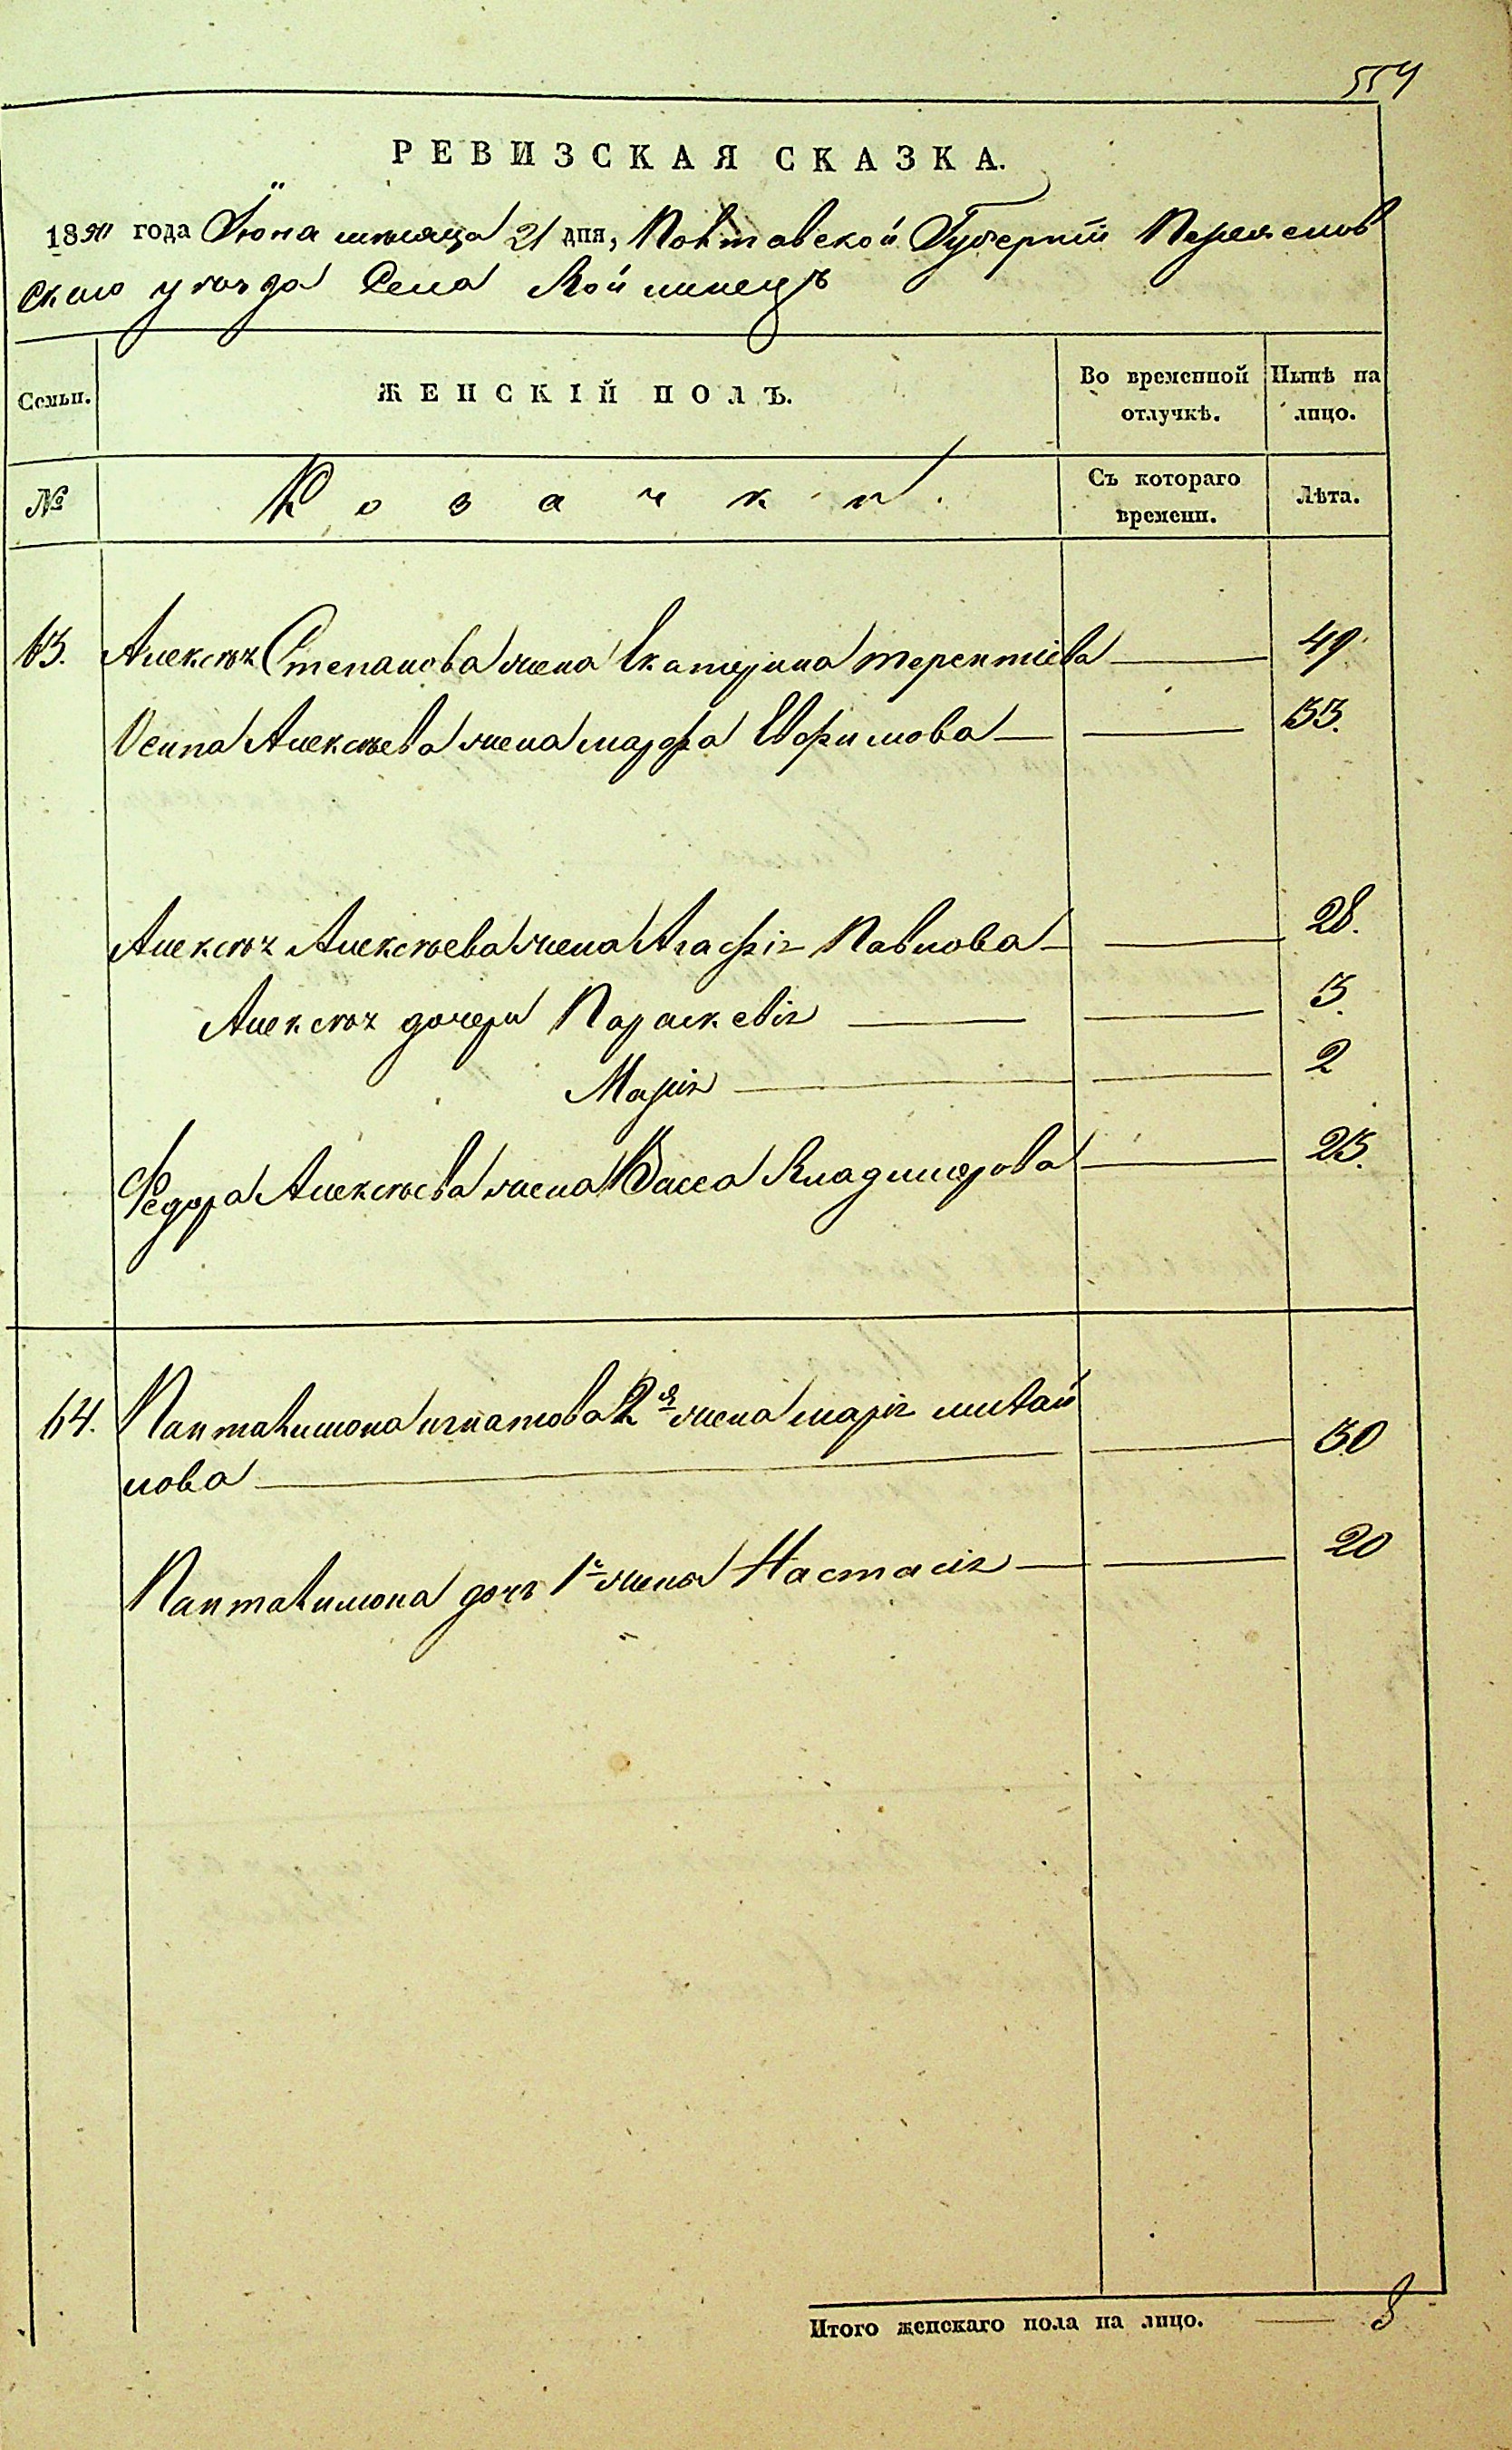 554
РЕВИЗСКАЯ СКАЗКА.
18 года Іюня месяца 21 дня, Полтавской Губерніи Переяслов
скаго уѣзда Села Войтинецъ
Семьи. ЖЕНСКІЙ ПОЛЪ. Во временной отлучкѣ. Нынѣ на лицо.
№ Козачки. Съ котораго времени. Лѣта.
63. Алексѣя Степанова жена Екатерина терентіева 49.
Осипа Алексѣева жена марфа Евфимова 33.
Алексѣя Алексѣева жена Агафія Павлова 28.
Алексѣя дочери Параскевія 5.
Марія 2
Федора Алексѣева жена Васса Владимерова 25.
64. Пантелимона игнатова 2я жена марія михай
лова 50
Пантелимона дочь 1й жены Настасія 20
Итого женскаго пола на лицо. 8